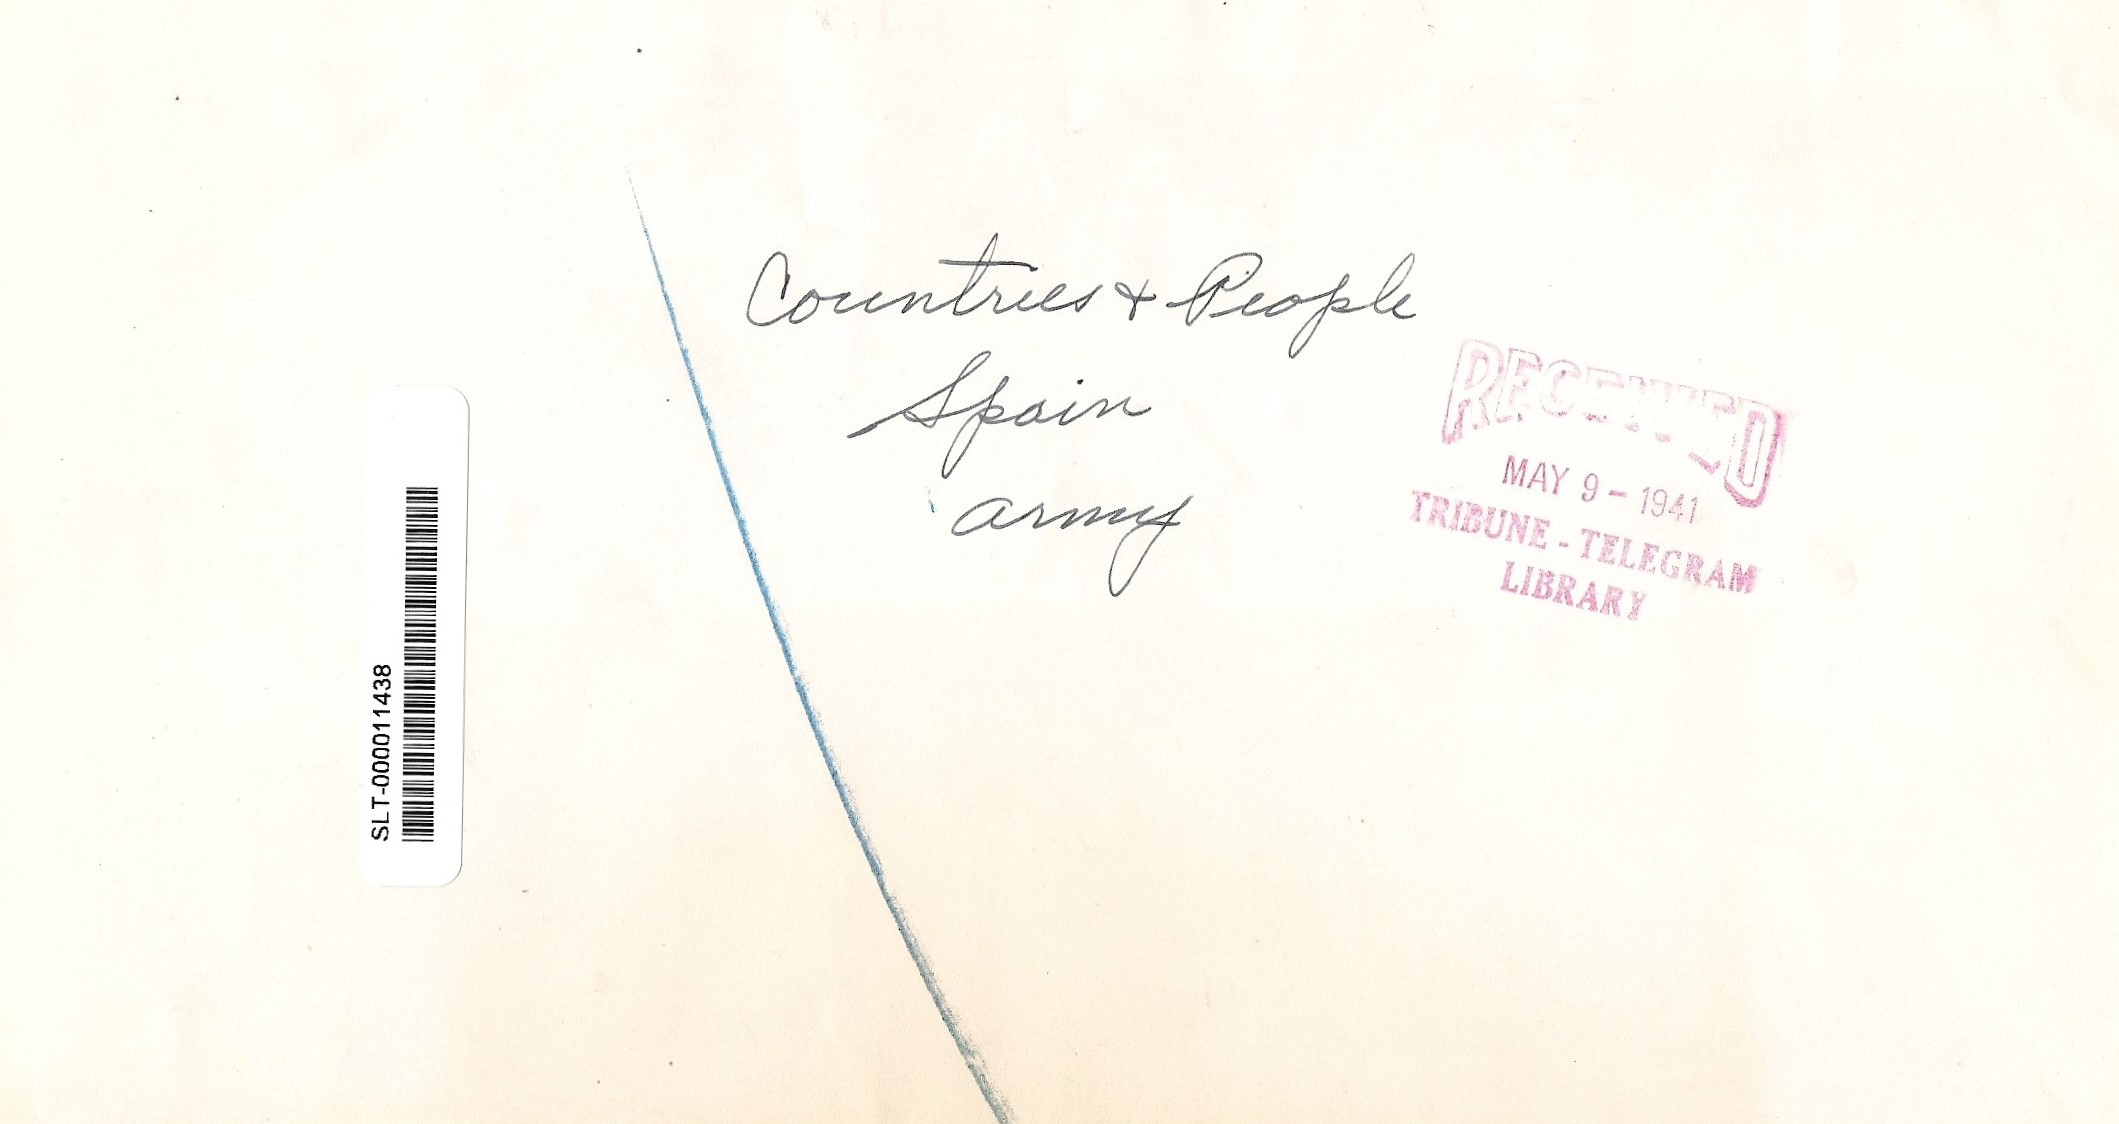 Countries & People
Spain
army
RECEIVED
MAY 9 - 1941
TRIBUNE - TELEGRAM
LIBRARY
SLT-000011438